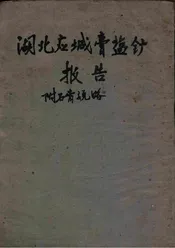 湖北应城膏盐矿
报告
附石膏说略